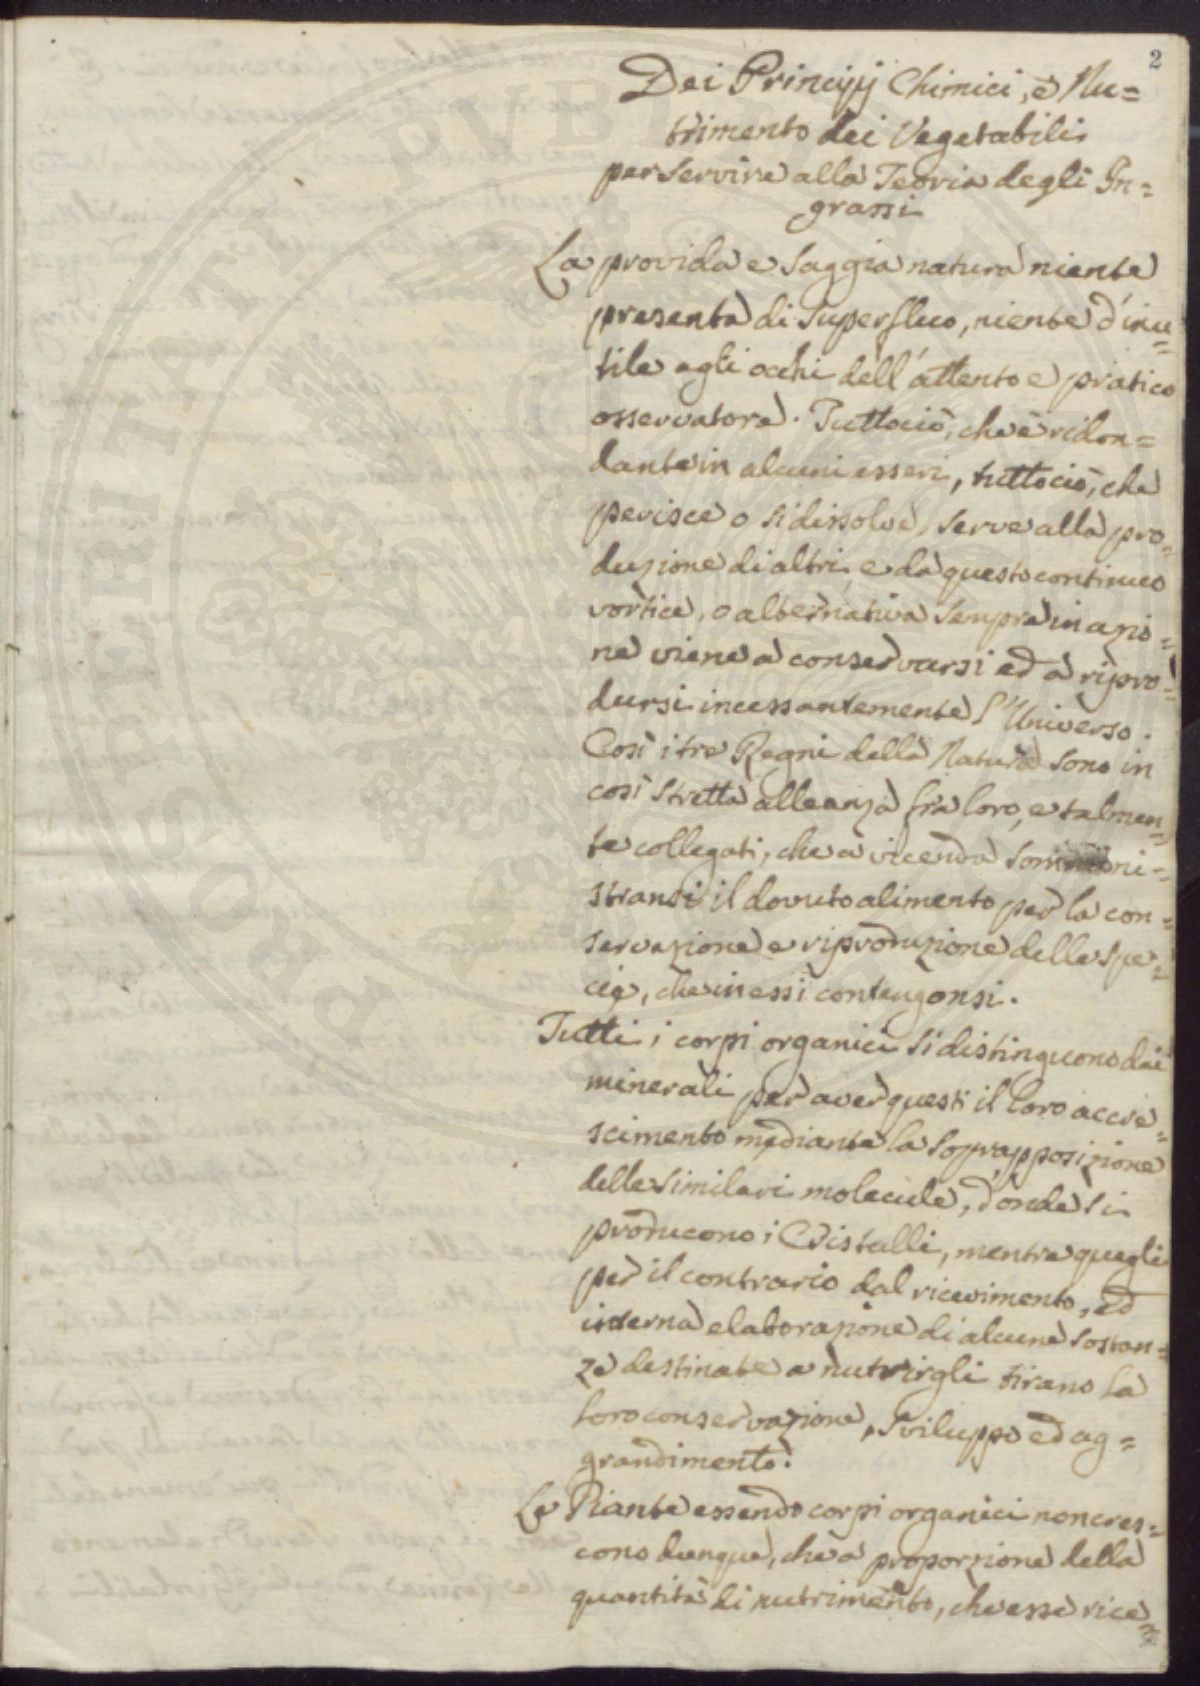 2
Dei Principj Chimici, e Nu=
trimento dei Vegetabili
per servire alla Teoria degli In=
grassi
La provida e saggia natura niente
presenta di superfluo, niente d'inu=
tile agli occhi dell'attento e pratico
osservatore. Tuttociò, che è ridon=
dante in alcuni esseri, tuttociò, che
perisce o si dissolve, serve alla pro=
duzione di altri e da questo continuo
vortice, o alternativa sempre in azio=
ne viene a conservarsi ed a ripro=
dursi incessantemente l'Universo.
Così i tre Regni della Natura sono in
così stretta alleanza fra loro, e talmen=
te collegati, che a vicenda sommini=
stransi il dovuto alimento per la con=
servazione e riproduzione delle spe=
cie, che in essi contengonsi.
Tutti i corpi organici si distinguono dai
minerali per aver questi il loro accre=
scimento mediante la soprapposizione
delle similari molecule, donde si
producono i Cristalli, mentre quegli
per il contrario dal ricevimento, ed
interna elaborazione di alcune sostan=
ze destinate a nutrirgli tirano la
loro conservazione, sviluppo ed ag=
grandimento.
Le Piante essendo corpi organici non cres=
cono dunque, che a proporzione della
quantità di nutrimento, che esse rice=
PROSPERITATI PVBL